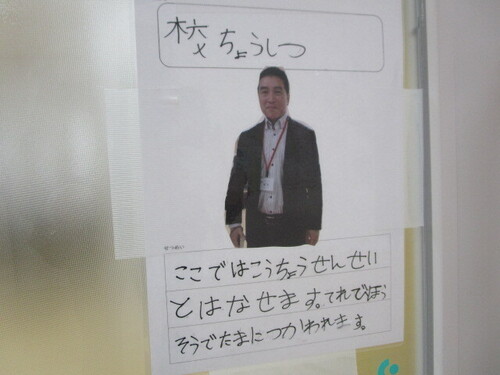 校ちょうしつ
ここではこうちょうせんせい
とはなせます。てれびほう
そうでたまにつかわれます。